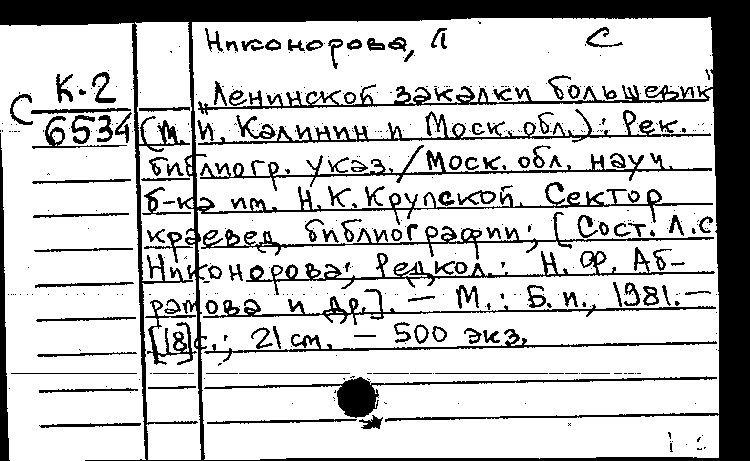 Никонорова, Л С
С К-2
6534
„Ленинской закалки большевик"
(М. И. Калинин и Моск. обл.): Рек.
библиогр. указ./Моск. обл. науч.
б-ка им. Н.К.Крупской. Сектор
краевед. библиографии; [Сост. Л.С.
Никонорова; Редкол.: Н.Ф. Аб-
рамова и др.]. — М.: Б.и., 1981.—
[18]с.; 21 см. — 500 экз.